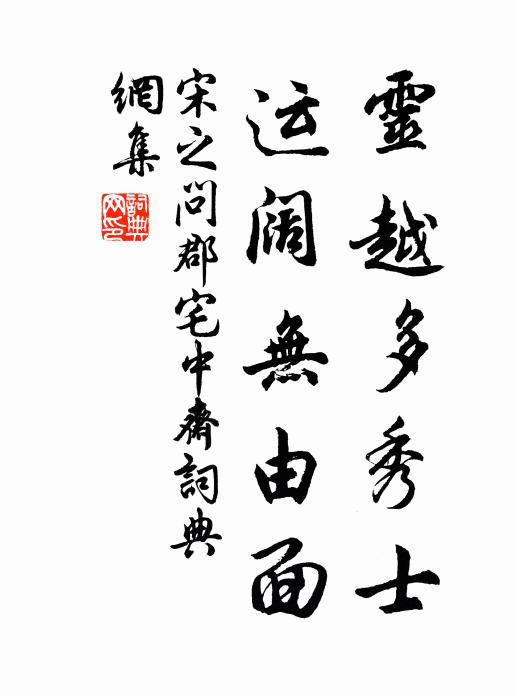 靈越多秀士
运阔無由面
宋之問郡宅中齋詞典
網集
詞典網印